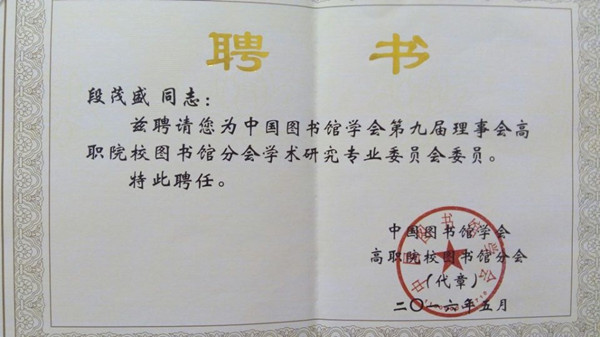 聘书
段茂盛 同志：
兹聘请您为中国图书馆学会第九届理事会高
职院校图书馆分会学术研究专业委员会委员。
特此聘任。
中国图书馆学会
高职院校图书馆分会
（代章）
二〇一六年五月
中国图书馆学会